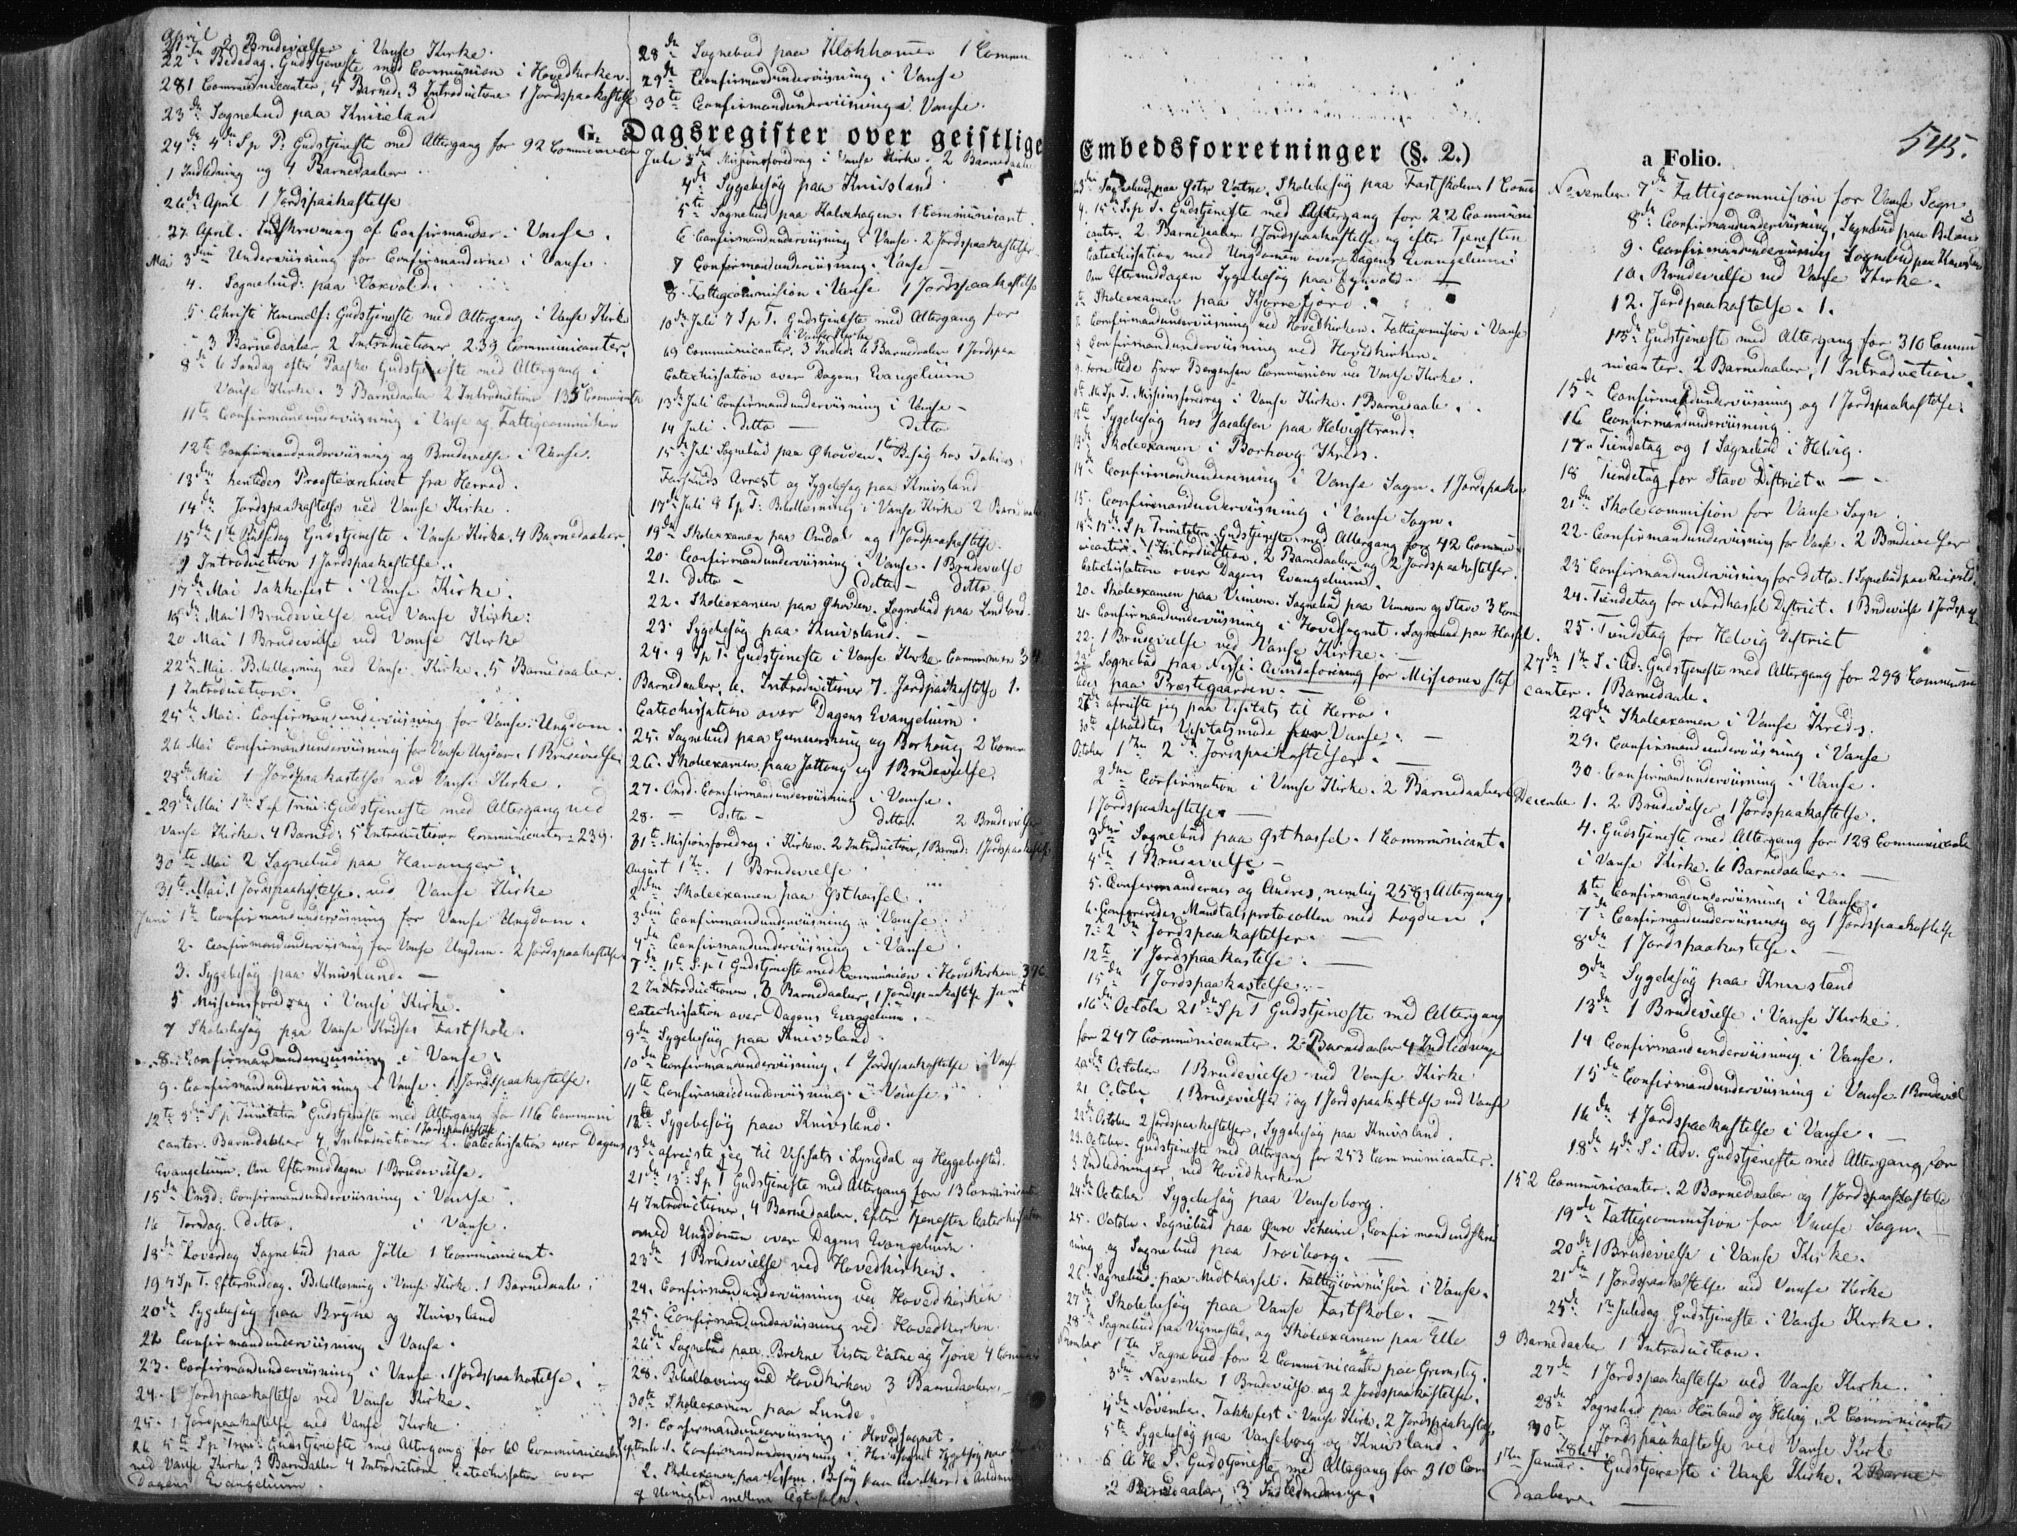 April
21de 2 Brudevielser i Vanse Kirke.
22de Bededag. Gudstjeneste med Communion i Hovedkirken.
281 Communicanter, 4 Barned. 3 Introductioner 1 Jordspaakastelse
23de Sognebud paa Knivsland
24de 4de S p P: Gudstjeneste med Altergang for 92 Communicanter
1 Indledning og 4 Barnedaaber
26de April 1 Jordspaakastelse
27 April. Indskrivning af Confirmander i Vanse.
Mai 3die Underviisning for Confirmanderne i Vanse
4. Sognebud paa
5. Christi Himmelf: Gudstjeneste med Altergang i Vanse Kirke
3 Barnedaaber 2 Introductioner 239 Communicanter.
8de 6 Søndag efter Paaske Gudstjeneste med Altergang i
Vanse Kirke. 3 Barnedaaber 2 Introductioner 135 Communicanter
11te Confirmandunderviisning i Vanse og Fattigcommission
12te Confirmandunderviisning og Brudevielse i Vanse.
13de henledes Proostearchivet fra Herrad.
14de Jordspaakastelse ved Vanse Kirke.
15de 1ste Pintsedag Gudstjeneste i Vanse Kirke. 4 Barnedaaber
9 Introduction 1 Jordspaakastelse.
17de Mai Takkefest i Vanse Kirke.
18de Mai 1 Brudevielse ved Vanse Kirke:
20 Mai 1 Brudevielse ved Vanse Kirke
22de Mai. Bibellæsning ved Vanse Kirke. 5 Barnedaaber.
1 Introduction.
25de Mai. Confirmandunderviisning for Vanse Ungdom.
26 Mai Confirmandunderviisning for Vanse Ungdom. 1 Brudevielse
28de Mai 1 Jordspaakastelse ved Vanse Kirke.
29de Mai 1ste S e p Trini: Gudstjeneste med Altergang ved
Vanse Kirke. 4 Barned: 5 Introductioner Communicanter 239.
30te Mai 2 Sognebud paa Hananger.
31te Mai. 1 Jordspaakastelse ved Vanse Kirke
Juni 1ste Confirmandunderviisning for Vanse Ungdom.
2. Confirmandunderviisning for Vanse Ungdom. 2 Jordspaakastelser
3. Sygebesøg paa Knivsland.
5 Missionsforedrag i Vanse Kirke.
7 Skolebesøg paa Vanse Kredses Fastskole.
8. Confirmandunderviisning i Vanse.
9. Confirmandunderviisning i Vanse. 1 Jordspaakastelse.
12te S p Trinitatis Gudstjeneste med Altergang for 116 Communi
canter. Barnedaaber 4 Introductioner 2. 1 Jordspaakastelse Catechisation over Dagens
Evangelium. Om Eftermiddagen 1 Brudevielse.
15de Onsd: Confirmandunderviisning i Vanse.
16 Torsdag. Ditto. i Vanse.
18de Løverdag Sognebud paa Jølle 1 Communicant.
19 4 S p T. Eftermiddag. Bibellæsning i Vanse Kirke. 1 Barnedaab
20de Sygebesøg paa Bryne og Knivsland
22 Confirmandunderviisning i Vanse.
23. Confirmandunderviisning i Vanse. 1 Jordspaakastelse.
24. 1 Jordspaakastelse ved Vanse Kirke.
25. 1 Jordspaakastelse ved Vanse Kirke
26 5te S p Trin: Gudstjeneste med Altergang for 60 Communicanter
ved Vanse Kirke 3 Barnedaaber 4 Introductioner Catechisation over
Dagens Evangelium.
28de Sognebud paa Klokhammer 1 Commun
29de Confirmandunderviisning i Vanse
30te Confirmandunderviisning i Vanse.
G. Dagsregister over geistlige
Juli 3die Missionsforedrag i Vanse Kirke. 2 Barnedaaber
4de Sygebesøg paa Knivsland.
5te Sognebud paa Kalvehagen. 1 Communicant
6 Confirmandunderviisning i Vanse. 2 Jordspaakastelser
7 Confirmandunderviisning. Vanse
8. Fattigcommission i Vanse 1 Jordspaakastelse
10de Juli 7 S p T. Gudstjeneste med Altergang for
i Vanse Kirke
69 Communicanter. 3 Indled: 6 Barnedaaber 1 Jordspaa
Catechisation over Dagens Evangelium
13de Juli Confirmandunderviisning i Vanse
14 Juli. ditto — ditto
15de Juli Sognebud paa Ghovden. 1te Besøg hos Tobias
Farsunds Arrest og Sygebesøg paa Knivsland
17de Juli 8 S p T: Bibellæsning i Vanse Kirke 2 Barnedaaber
19de Skoleexamen paa Omdal og 1 Jordspaakastelse.
20. Confirmandunderviisning i Vanse. 1 Brudevielse
21. ditto — ditto — ditto
22. Skoleexamen paa Ghovden. Sognebud paa Lindland.
23. Sygebesøg paa Knivsland.
24. 9 S p T. Gudstjeneste i Vanse Kirke Communion 34
Barnedaaber, 6. Introductioner 7. Jordspaakastelse 1.
Catechisation over Dagens Evangelium.
25. Sognebud paa Gunnershaug og Borhaug 2 Comm
26. Skoleexamen paa Jøllong og 1 Brudevielse
27. Onsd. Confirmandunderviisning i Vanse.
28. — ditto — ditto. 2 Brudevielser
31te Missionsforedrag i Kirken. 2 Introductioner, 1 Barned: 1 Jordspaakastelse
August 1ste. 1 Brudevielse
2den Skoleexamen paa Østhassel.
3die Confirmandunderviisning i Vanse.
4de Confirmandunderviisning i Vanse.
7de 11te S. p T Gudstjeneste med Communion i Hovedkirken 376
2 Introductioner, 3 Barnedaaber, 1 Jordspaakastelse samt
Catechisation over Dagens Evangelium.
9de Sygebesøg paa Knivsland
10de Confirmandunderviisning. 1 Jordspaakastelse i Vanse
11te Confirmandunderviisning i Vanse.
12te Sygebesøg paa Knivsland.
13de afreiste jeg til Visitats i Lyngdal og Heggebostad.
21de 13de S p T Gudstjeneste med Altergang for 13 Communicanter
4 Introductioner, 4 Barnedaaber. Efter Tjenesten Catechisation
med Ungdommen over Dagens Evangelium.
23de 1 Brudevielse ved Hovedkirken.
24. Confirmandunderviisning ved Hovedkirken
25. Confirmandunderviisning ved Hovedkirken
26de Sognebud paa Brekne Vestre Vatne og Tjørve 4 Commun
28. Bibellæsning ved Hovedkirken 3 Barnedaaber
30te Skoleexamen paa Lunde.
31. Confirmandunderviisning i Hovedsognet.
Septemb. 1. Confirmandunderviisning i Hovedsognet Sygebesøg paa
2. Skoleexamen paa Nessem. Besøg
Uenighed mellem Ægtefolk.
Embedsforretninger (§. 2.)
3de Sognebud paa Østre Vatne. Skolebesøg paa Fastskolen 1 Comm
4. 15de S. p T. Gudstjeneste med Altergang for 22 Communi
canter. 2 Barnedaaber 1 Jordspaakastelse og efter Tjenesten
Catechisation med Ungdommen over Dagens Evangelium
Om Eftermiddagen Sygebesøg paa
Skoleexamen paa Kjørrefjord.
Confirmandunderviisning ved Hovedkirken. Fattigcommission i Vanse
Confirmandunderviisning ved Hovedkirken.
9. forrettede Herr Bergensen Communion ved Vanse Kirke.
S p T. Missionsforedrag i Vanse Kirke. 1 Barnedaab.
Sygebesøg hos Jacobsen paa Helvigstrand.
Skoleexamen i Borhaug Kreds.
14de Confirmandunderviisning i Vanse Sogn. 1 Jordspaakast
15. Confirmandunderviisning i Vanse Sogn.
18de 17de S. p Trinitatis Gudstjeneste med Altergang for 42 Commu
nicanter. 1 Introduction, 2 Barnedaaber og 2 Jordspaakastelser.
Catechisation over Dagens Evangelium.
20. Skoleexamen paa Vemen. Sognebud paa Vemen og Stave 3 Com
21. Confirmandunderviisning i Hovedsognet. Sognebud paa Hassel.
22. 1 Brudevielse ved Vanse Kirke.
Sognebud paa Nesse. Qvindeforening for Missionen
paa Præstegaarden.
afreiste jeg paa Visitats til Herrad.
30te afholdtes Visitatsmøde for Vanse.
October 1ste 2 Jordspaakastelser.
2den Confirmation i Vanse Kirke. 2 Barnedaaber
1 Jordspaakastelse
3die Sognebud paa Østhassel. 1 Communicant.
4de 1 Brudevielse
5. Confirmandernes og Andres, nemlig 258, Altergang
6. Confereredes Mandtalsprotocollen med Fogden.
7. 2 Jordspaakastelser.
12te 1 Jordspaakastelse.
15de 1 Jordspaakastelse.
16de October 21de S p T Gudstjeneste med Altergang
for 247 Communicanter. 2 Barnedaaber 4 Indledninger
20de October 1 Brudevielse ved Vanse Kirke
21 October 1 Brudevielse og 1 Jordspaakastelse ved Vanse
22de October 2 Jordspaakastelser, Sygebesøg paa Knivsland.
23. October. Gudstjeneste med Altergang for 253 Communicanter.
3 Indledninger ved Hovedkirken
24de October Sygebesøg paa Vanseborg.
25. October. Sognebud paa Øvre Skeime, Confirmandindskriv
ning og Sognebud paa Troiborg.
26. Sognebud paa Midthassel. Fattigcommission i Vanse.
27de Skolebesøg paa Vanse Fastskole.
28de Sognebud paa Vigmostad, og Skoleexamen paa Elle
November 1ste Sognebud for 2 Communicanter paa Grimsby.
3die November 1 Brudevielse og 2 Jordspaakastelser.
4de November. Takkefest i Vanse Kirke. 2 Jordspaakastelser
5te Sygebesøg paa Vanseborg og Knivsland.
6 A H T. Gudstjeneste med Altergang for 310 Com
2 Barnedaaber, 3 Indledninger.
545.
a Folio.
November 7de Fattigcommission for Vanse Sogn
8de Confirmandunderviisning, Sognebud paa
9. Confirmandunderviisning Sognebud paa
10. Brudevielse ved Vanse Kirke.
12. Jordpaakastelse. 1.
13de Gudstjeneste med Altergang for 310 Commu
nicanter. 2 Barnedaaber, 1 Introduction.
15de Confirmandunderviisning og 1 Jordspaakastelse
16 Confirmandunderviisning.
17. Tiendetag og 1 Sognebud i Helvig.
18 Tiendetag for Stave District.
21de Skolecommission for Vanse Sogn.
22. Confirmandunderviisning for Vanse. 2 Brudevielser
23 Confirmandunderviisning for ditto. 1 Sognebud paa
24. Tiendetag for Nordhassel District. 1 Brudevielse 1 Jordspaak
25. Tiendetag for Helvig District
27de 1ste S. i Ad: Gudstjeneste med Altergang for 298 Communi
canter. 1 Barnedaab.
28de Skoleexamen i Vanse Kreds.
29. Confirmandunderviisning i Vanse
30. Confirmandunderviisning i Vanse.
Decembr 1. 2 Brudevielser, 1 Jordspaakastelse.
4. Gudstjeneste med Altergang for 128 Communicanter
i Vanse Kirke. 6 Barnedaaber.
6te Confirmandunderviisning i Vanse.
7de Confirmandunderviisning og 1 Jordspaakastelse
8de 1 Jordspaakastelse.
9de Sygebesøg paa Knivsland
13de 1 Brudevielse i Vanse Kirke.
14 Confirmandunderviisning i Vanse.
15de Confirmandunderviisning i Vanse. 1 Brudeviel
16de 1 Jordspaakastelse i Vanse.
18de 4de S. i Adv. Gudstjeneste med Altergang for
152 Communicanter. 2 Barnedaaber og 1 Jordspaakastelse
19de Fattigcommission for Vanse Sogn.
20de 1 Brudevielse i Vanse Kirke.
21de 1 Jordspaakastelse ved Vanse Kirke
25de 1ste Juledag. Gudstjeneste i Vanse Kirke.
9 Barnedaaber 1 Introduction.
27de 1 Jordspaakastelse ved Vanse Kirke.
28de Sognebud paa Høiland og Helvig, 2 Communicanter
30te 1 Jordspaakastelse ved Vanse Kirke
1864
1ste Januar. Gudstjeneste i Vanse Kirke. 2 Barne
daaber.